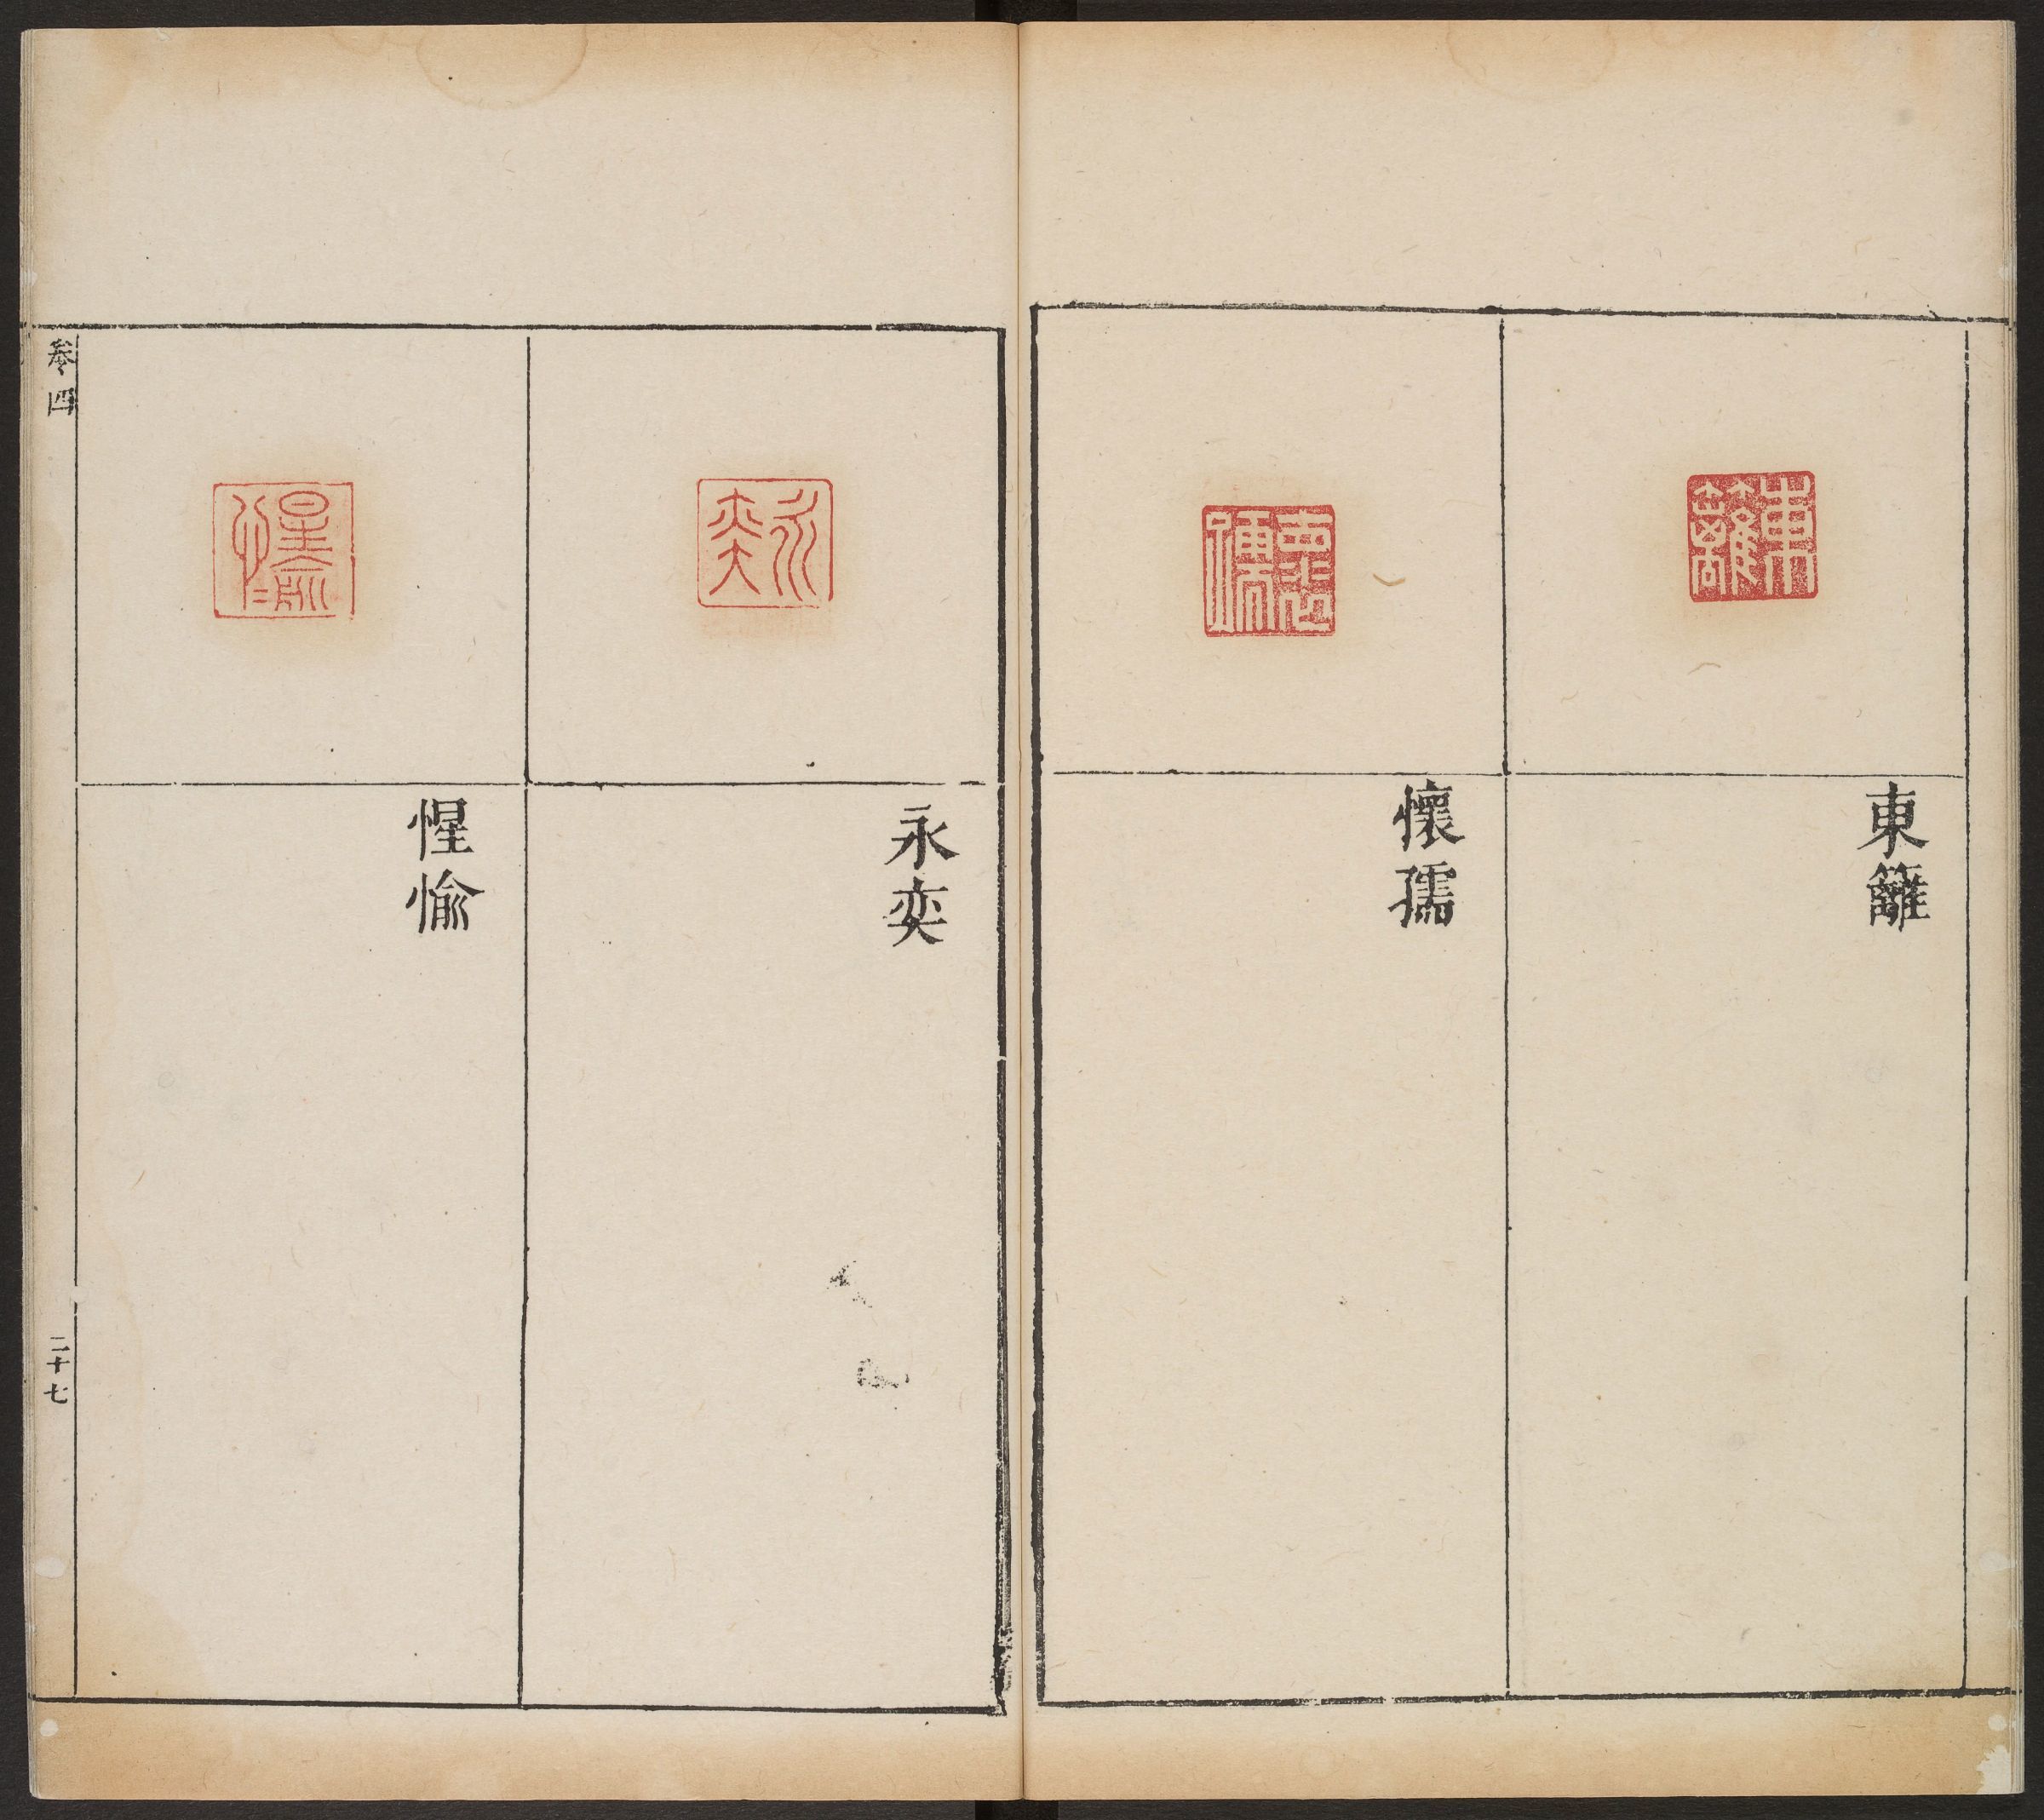 東籬
懷孺
永奕
惺愉
卷四
二十七